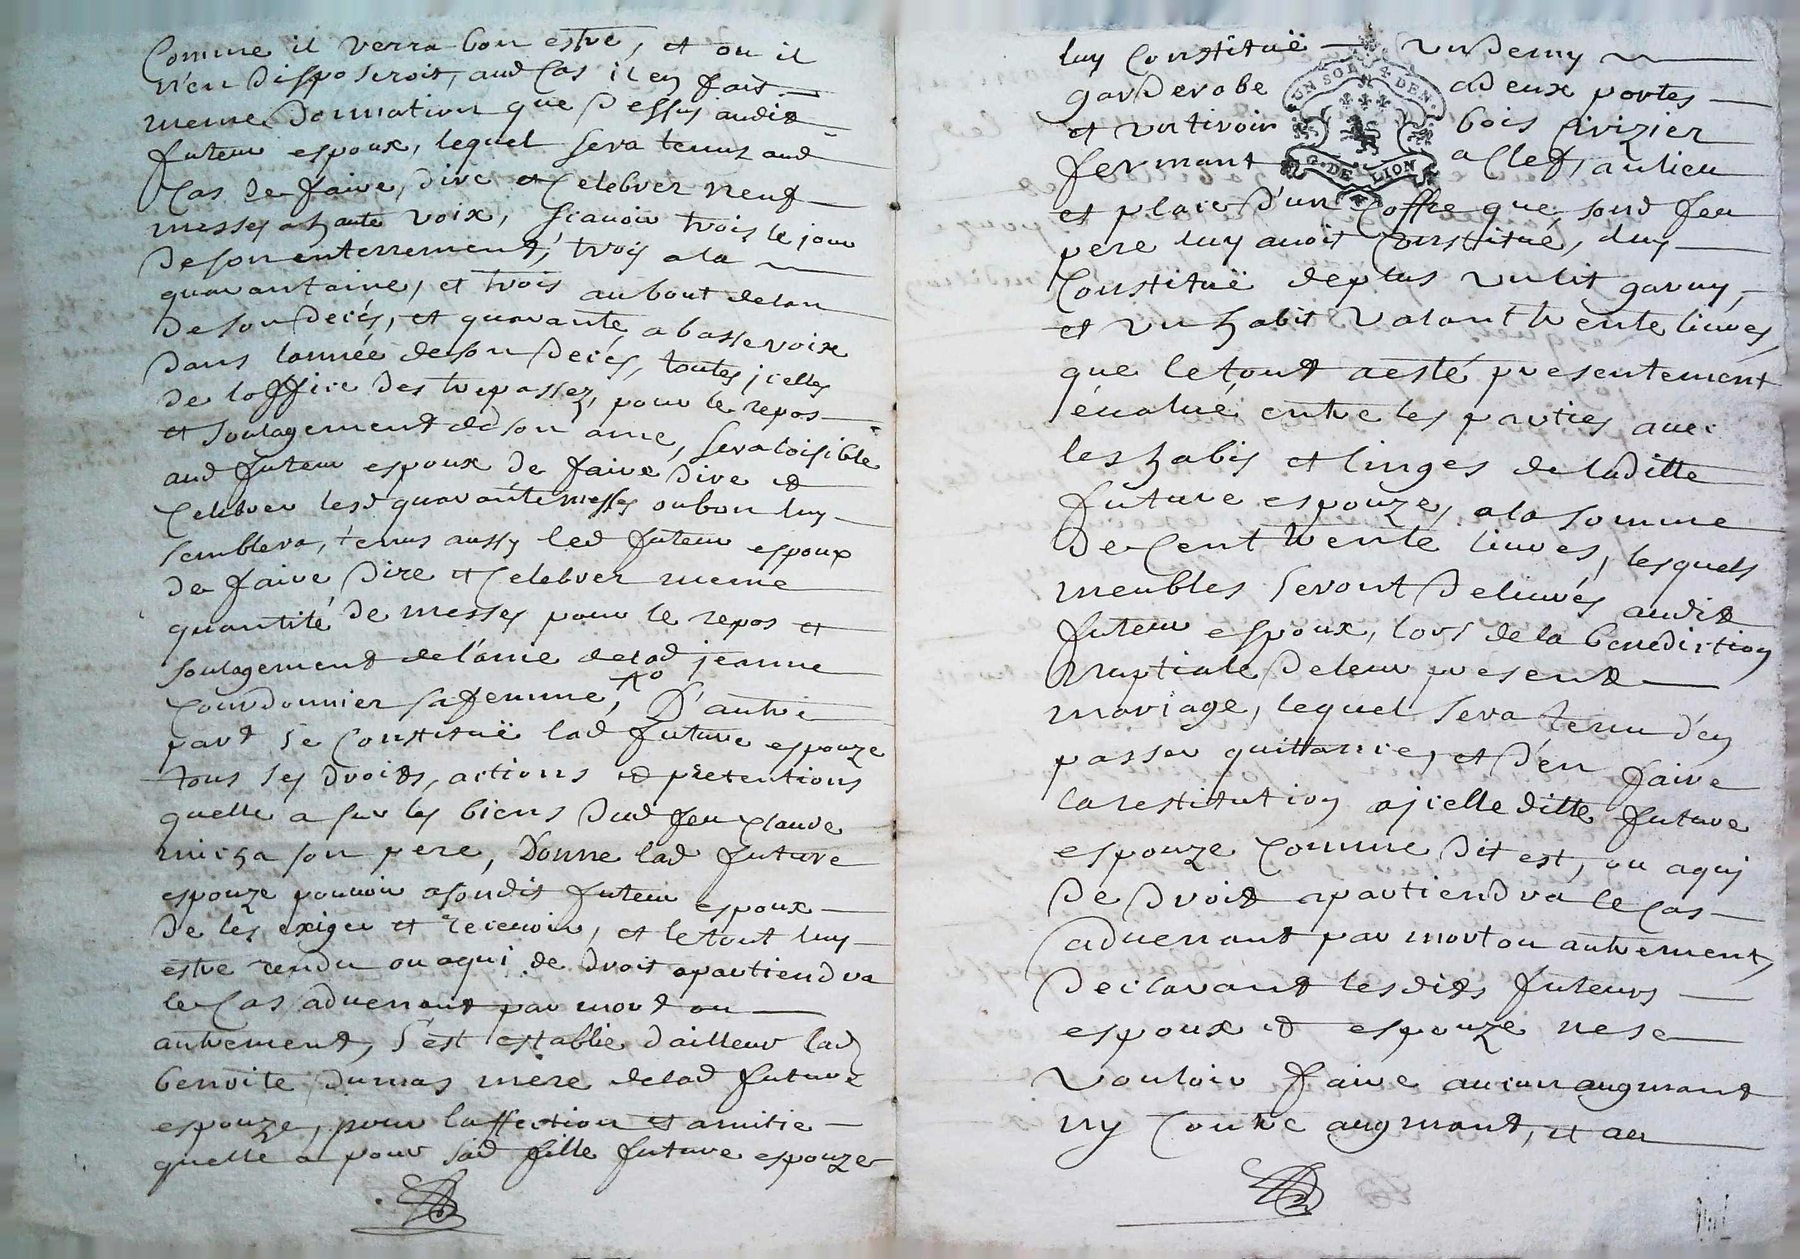 Comme il verra bon estre, et ou il
n'en disposeroit, aud cas il en fait
meme donnation que dessus audit
futeur espoux, lequel sera tenus aud
cas de faire, dire et celebrer neuf
messes a haute voix, scauoir trois le jour
de son enterrement, trois a la
quarantaine, et trois au bout de lan
de son decés, et quarante a basse voix
dans lannée de son decés, toutes jcelles
de loffice des trepassez, pour le repos
et soulagement de son ame, sera loisible
aud futeur espoux de faire dire et
celebrer lesd quarante messes ou bon luy
semblera, tenus aussy led futeur espoux
de faire dire et celebrer meme
quantité de messes pour le repos et
soulagement de l'ame de lad jeanne
courdonnier sa femme, D'autre
part se constituë lad future espouze
tous ses droits, actions et pretentions
quelle a sur les biens dud feu claude
micha son pere, Donne lad future
espouze pouuoir a sondit futeur espoux
de les exiger et receuoir, et le tout luy
estre rendu ou a qui de droit apartiendra
le cas aduenant par mort ou
autrement, s'est establie d'ailleur lad
benoite dumas mere de lad future
espouze, pour laffection et amitie
quelle a pour sad fille future espouze
luy constituë un demy
garderobe a deux portes
et un tiroir bois cirizier
fermant a clef, au lieu
et place d'un coffre que sond feu
pere luy auoit constitué, luy
constituë de plus un lit garny,
et un habit valant trente liures,
que le tout a esté presentement
éualué entre les parties auec
les habis et linges de laditte
future espouze, a la somme
de cent trente liures, lesquels
meubles seront deliurés audit
futeur espoux, lors de la benediction
nuptiale de leur present
mariage, lequel sera tenu d'en
passer quittance, et d'en faire
la restitution a jcelle ditte future
espouze comme dit est, ou a qui
de droit apartiendra le cas
aduenant par mort ou autrement,
declarant lesdits futeurs
espoux et espouze ne se
vouloir faire aucun augmant
ny contre augmant, et au
UN SOL 4 DEN.
G. DE LION